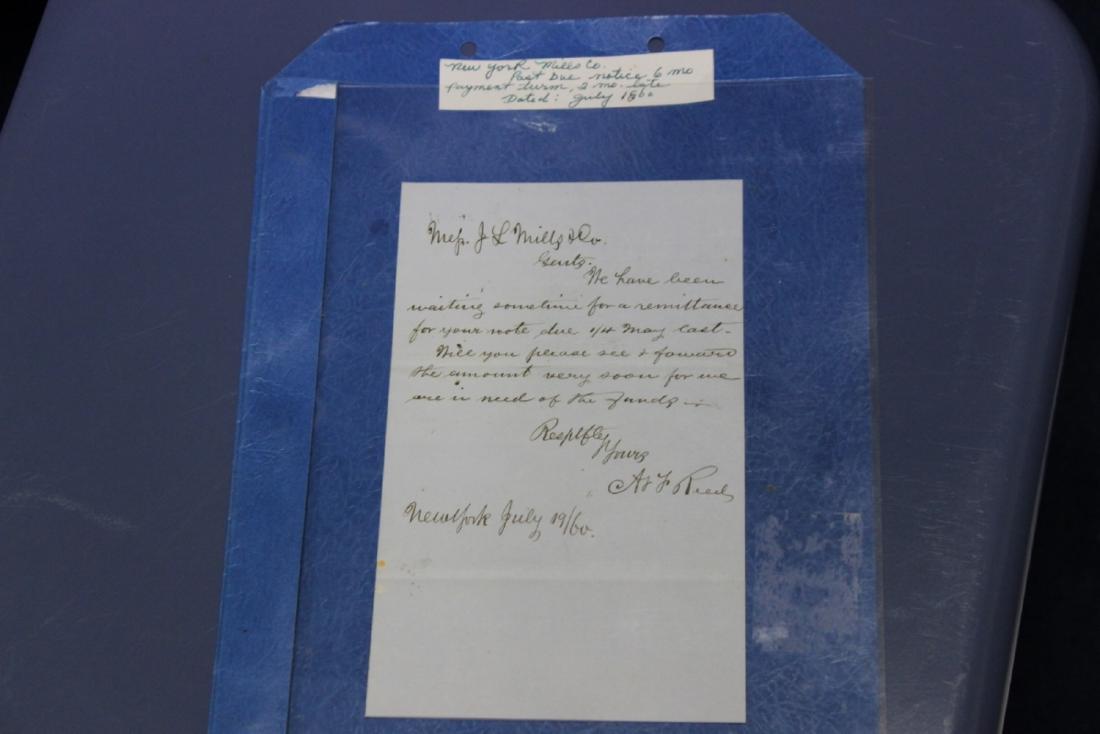 New York Mills Co.
Past Due notice 6 mo
payment term, 2 mo. late
Dated: July 1860
Mess. J L Mills & Co.
Gents.
We have been
waiting sometime for a remittance
for your note due 1/4 May last-
Will you please see & foward
the amount very soon for we
are in need of the funds
Respctfly
Yours
A & F Reed
New York July 19/60.